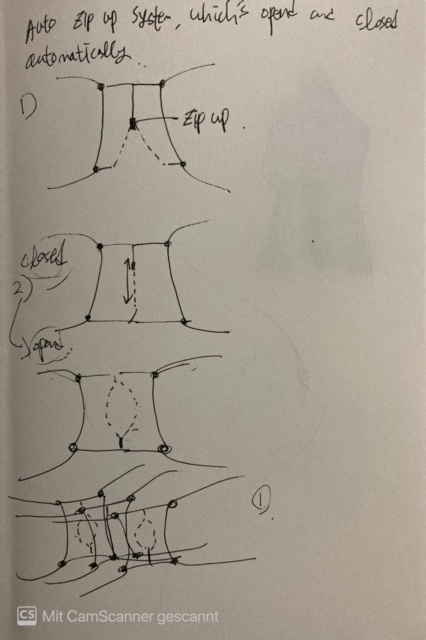 Auto Zip up System, which's opend and closed
automatically.
1)
Zip up.
closed
2)
opend.
①
CS Mit CamScanner gescannt